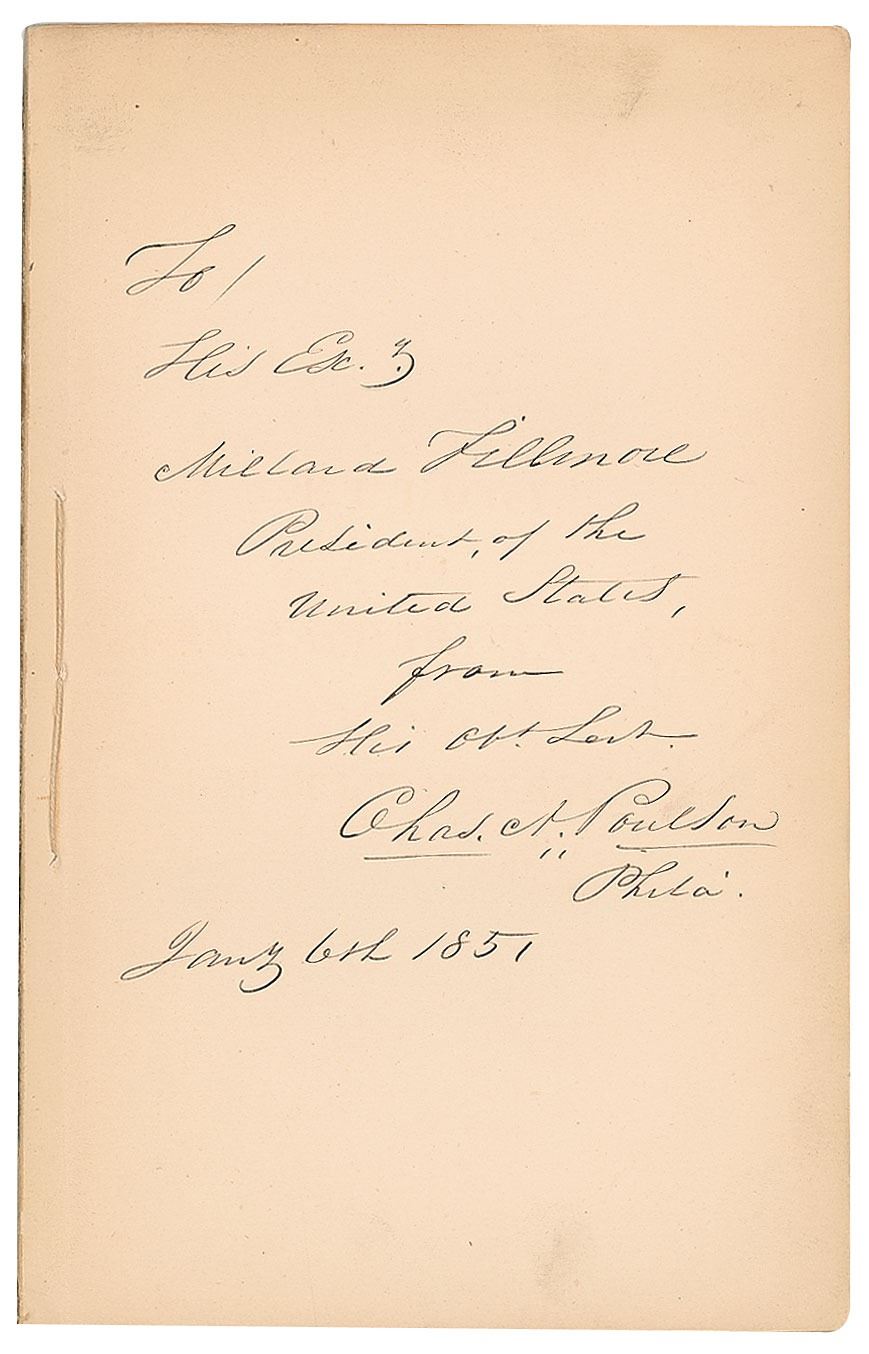 To /
His Exc.y
Millard Fillmore
President, of the
United States,
from
His obt. Sert.
Chas. A. Poulson
Phila.
Jany 6th 1851